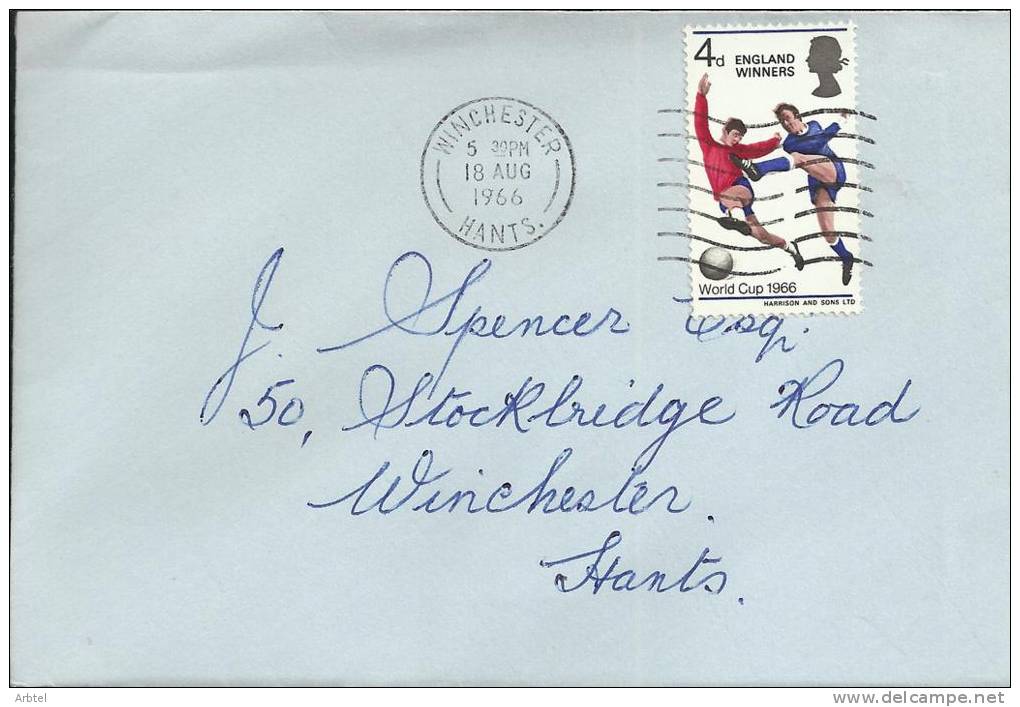 4d ENGLAND
WINNERS
WINCHESTER
5 30PM
18 AUG
1966
HANTS.
World Cup 1966
HARRISON AND SONS LTD
J. Spencer Esq.
50, Stockbridge Road
Winchester.
Hants.
Arbtel
www.delcampe.net